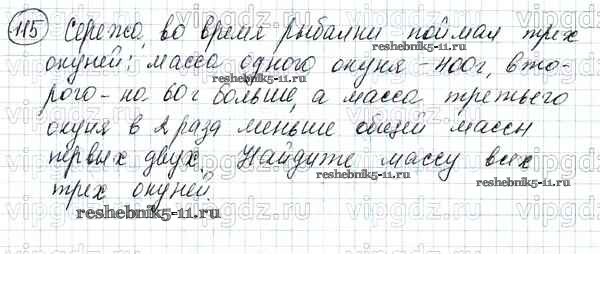 115 Сережа во время рыбалки поймал трех
окуней: масса одного окуня - 400г, вто-
рого - на 60г больше, а масса третьего
окуня в 2 раза меньше общей массы
первых двух. Найдите массу всех
трех окуней.
reshebnik5-11.ru
reshebnik5-11.ru
reshebnik5-11.ru
reshebnik5-11.ru
vipgdz.ru